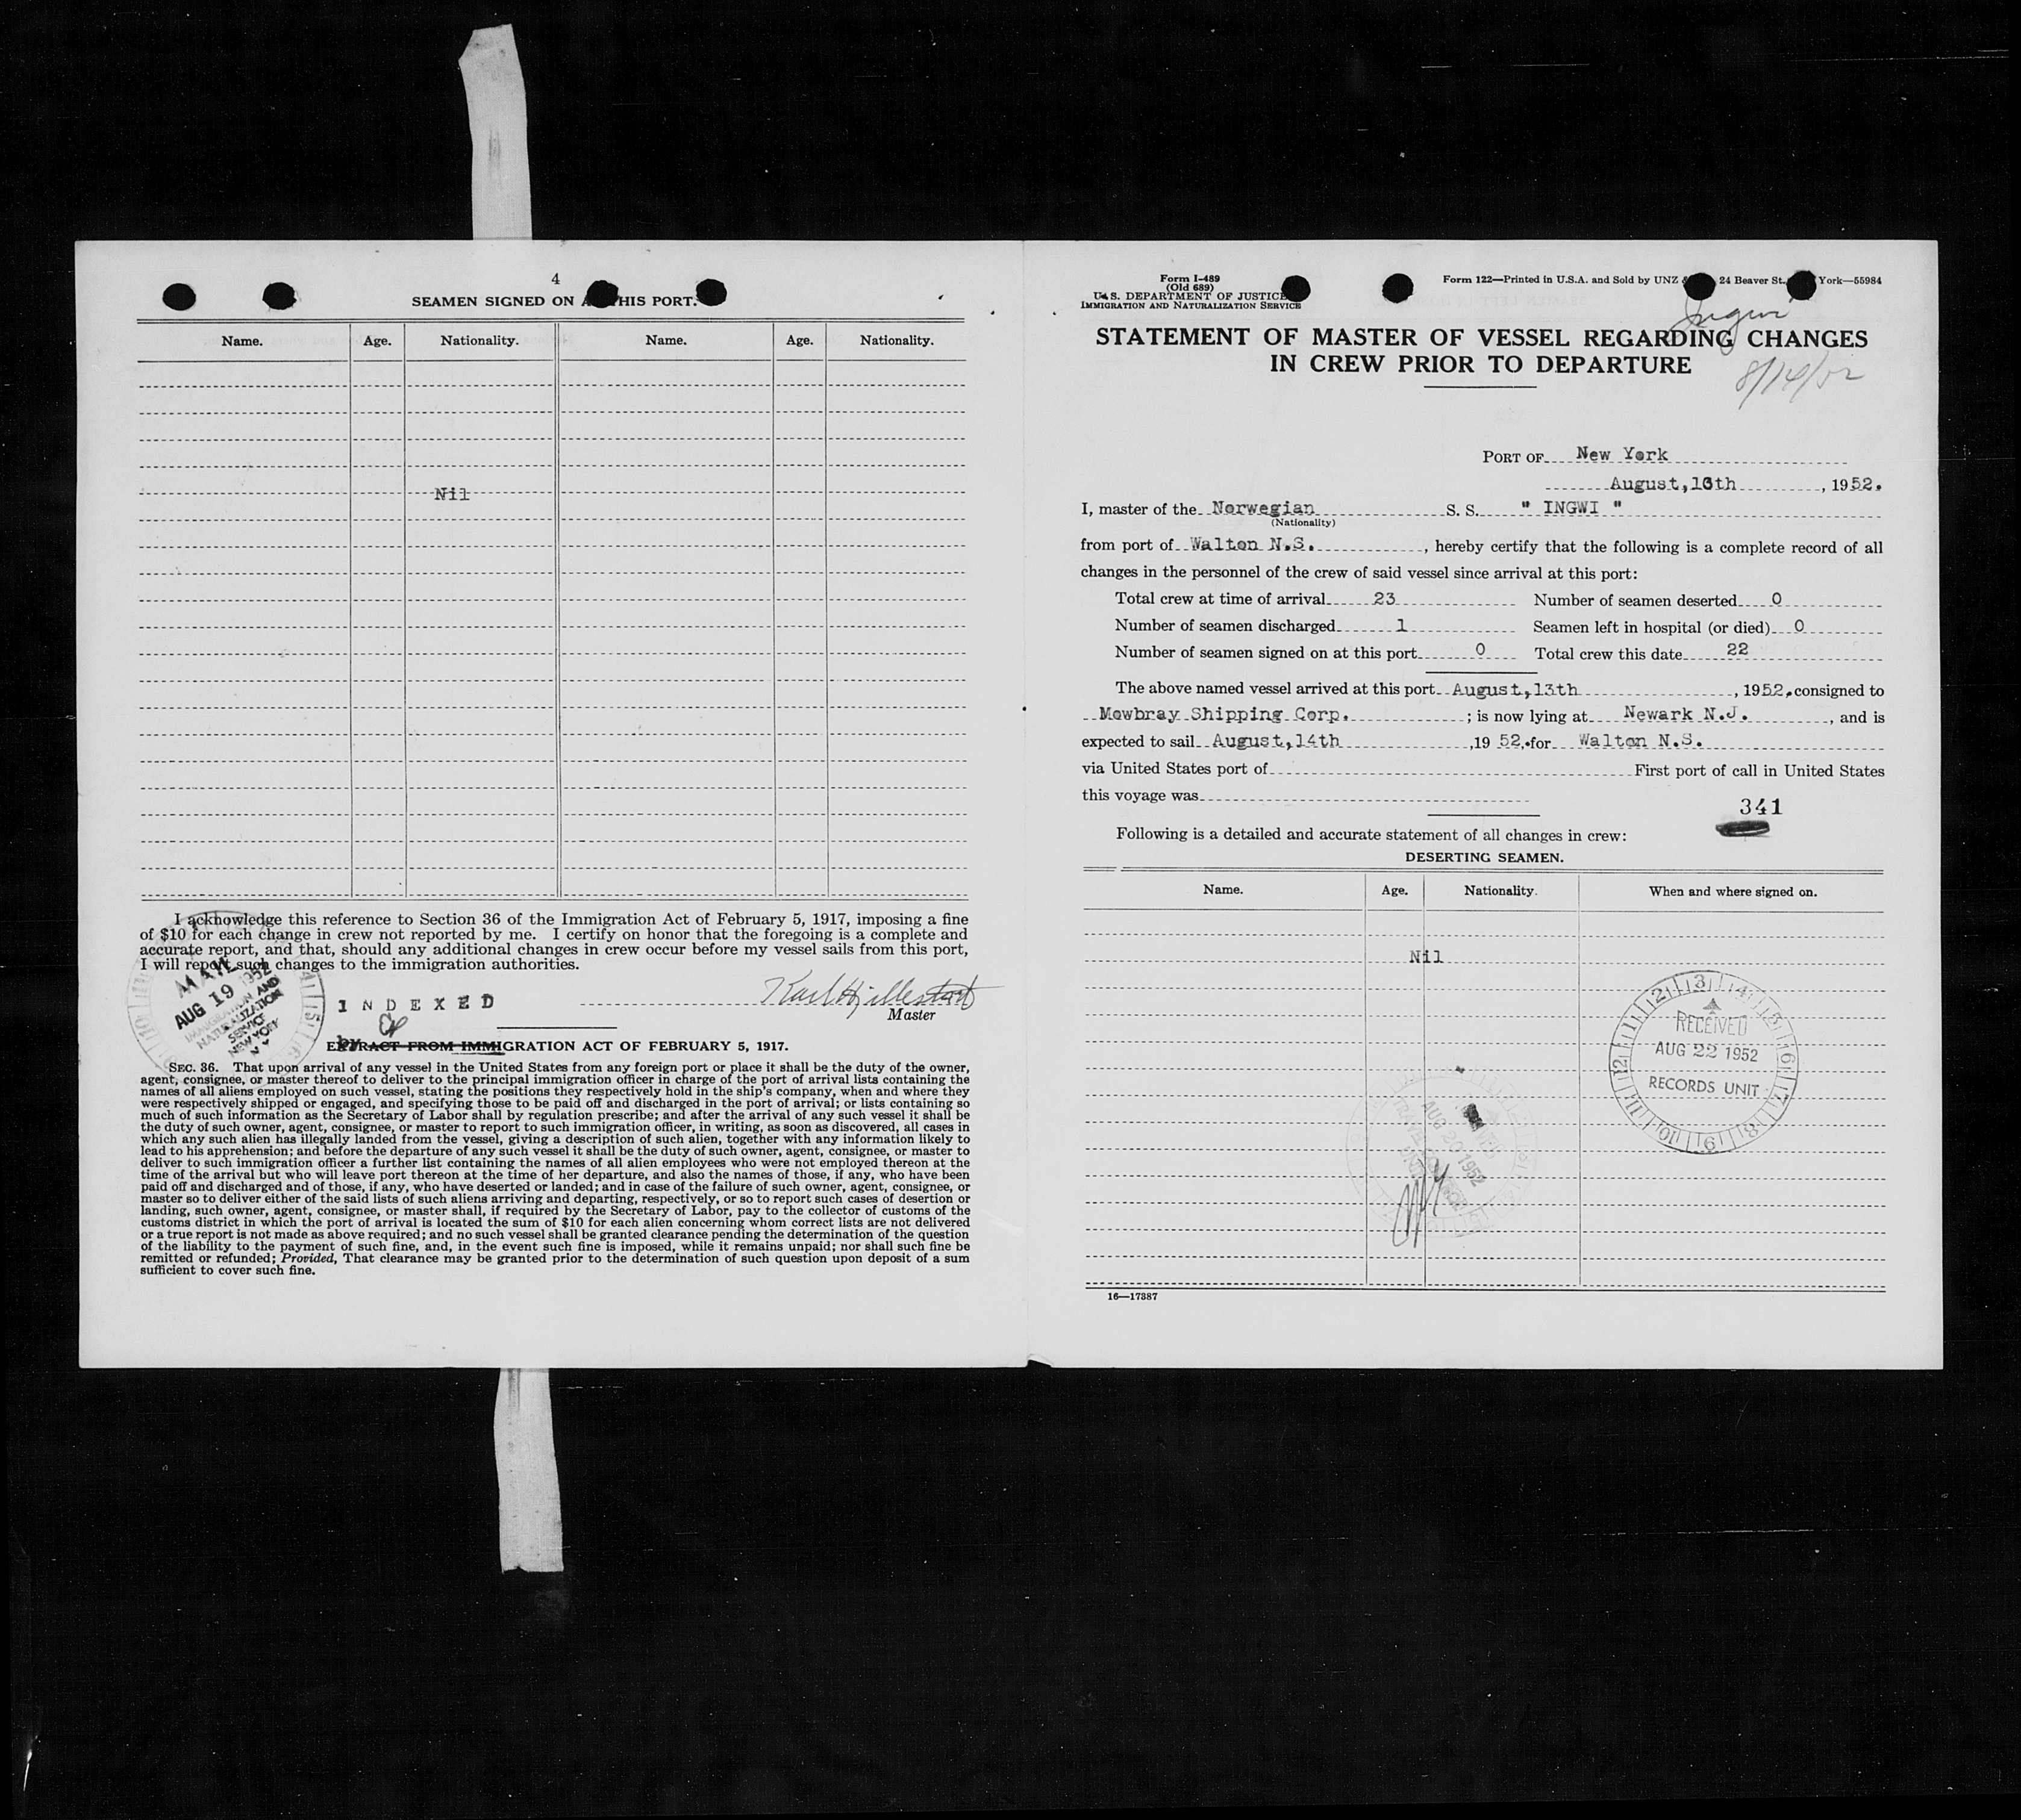 4
SEAMEN SIGNED ON A HIS PORT.
Name. Age. Nationality. Name. Age. Nationality.
Nil
I acknowledge this reference to Section 36 of the Immigration Act of February 5, 1917, imposing a fine
of $10 for each change in crew not reported by me. I certify on honor that the foregoing is a complete and
accurate report, and that, should any additional changes in crew occur before my vessel sails from this port,
I will report such changes to the immigration authorities.
MAIL
AUG 19 1952
IMMIGRATION AND
NATURALIZATION
SERVICE
NEW YORK
N Y
INDEXED
by
Master
EXTRACT FROM IMMIGRATION ACT OF FEBRUARY 5, 1917.
SEC. 36. That upon arrival of any vessel in the United States from any foreign port or place it shall be the duty of the owner,
agent, consignee, or master thereof to deliver to the principal immigration officer in charge of the port of arrival lists containing the
names of all aliens employed on such vessel, stating the positions they respectively hold in the ship's company, when and where they
were respectively shipped or engaged, and specifying those to be paid off and discharged in the port of arrival; or lists containing so
much of such information as the Secretary of Labor shall by regulation prescribe; and after the arrival of any such vessel it shall be
the duty of such owner, agent, consignee, or master to report to such immigration officer, in writing, as soon as discovered, all cases in
which any such alien has illegally landed from the vessel, giving a description of such alien, together with any information likely to
lead to his apprehension; and before the departure of any such vessel it shall be the duty of such owner, agent, consignee, or master to
deliver to such immigration officer a further list containing the names of all alien employees who were not employed thereon at the
time of the arrival but who will leave port thereon at the time of her departure, and also the names of those, if any, who have been
paid off and discharged and of those, if any, who have deserted or landed; and in case of the failure of such owner, agent, consignee, or
master so to deliver either of the said lists of such aliens arriving and departing, respectively, or so to report such cases of desertion or
landing, such owner, agent, consignee, or master shall, if required by the Secretary of Labor, pay to the collector of customs of the
customs district in which the port of arrival is located the sum of $10 for each alien concerning whom correct lists are not delivered
or a true report is not made as above required; and no such vessel shall be granted clearance pending the determination of the question
of the liability to the payment of such fine, and, in the event such fine is imposed, while it remains unpaid; nor shall such fine be
remitted or refunded; Provided, That clearance may be granted prior to the determination of such question upon deposit of a sum
sufficient to cover such fine.
Form I-489
(Old 689)
U. S. DEPARTMENT OF JUSTICE
IMMIGRATION AND NATURALIZATION SERVICE
Form 122—Printed in U.S.A. and Sold by UNZ & 24 Beaver St., York—55984
Ingwi
STATEMENT OF MASTER OF VESSEL REGARDING CHANGES
IN CREW PRIOR TO DEPARTURE
8/14/52
PORT OF New York
August,13th, 1952.
I, master of the Norwegian S. S. " INGWI "
(Nationality)
from port of Walton N.S., hereby certify that the following is a complete record of all
changes in the personnel of the crew of said vessel since arrival at this port:
Total crew at time of arrival 23 Number of seamen deserted 0
Number of seamen discharged 1 Seamen left in hospital (or died) 0
Number of seamen signed on at this port 0 Total crew this date 22
The above named vessel arrived at this port August,13th, 1952, consigned to
Mowbray Shipping Corp.; is now lying at Newark N.J., and is
expected to sail August,14th, 19 52, for Walton N.S.
via United States port of First port of call in United States
this voyage was
341
Following is a detailed and accurate statement of all changes in crew:
DESERTING SEAMEN.
Name. Age. Nationality. When and where signed on.
Nil
RECEIVED
AUG 22 1952
RECORDS UNIT
AUG 20 1952
16—17387